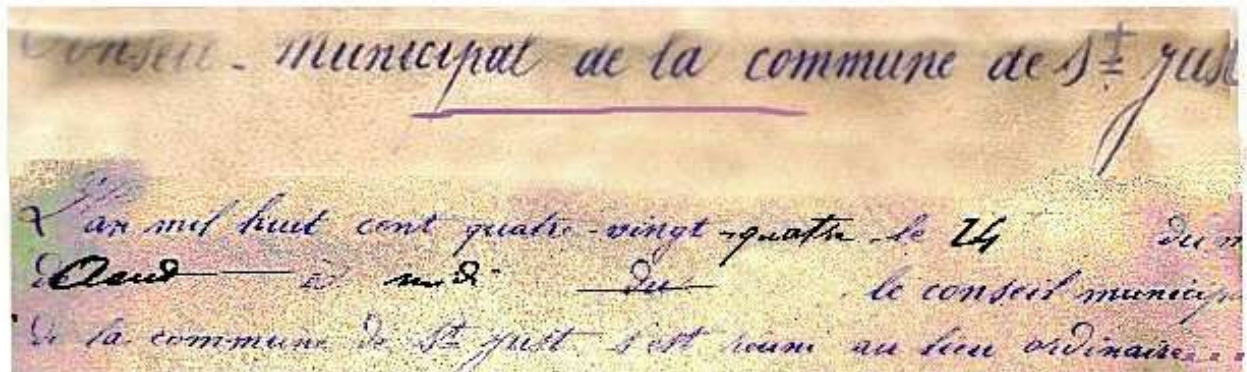 Conseil - Municipal de la commune de St Just
L'an mil huit cent quatre-vingt-quatre le 24 du m
d'Aout à midi du le conseil municip
de la commune de St Just s'est réuni au lieu ordinaire....